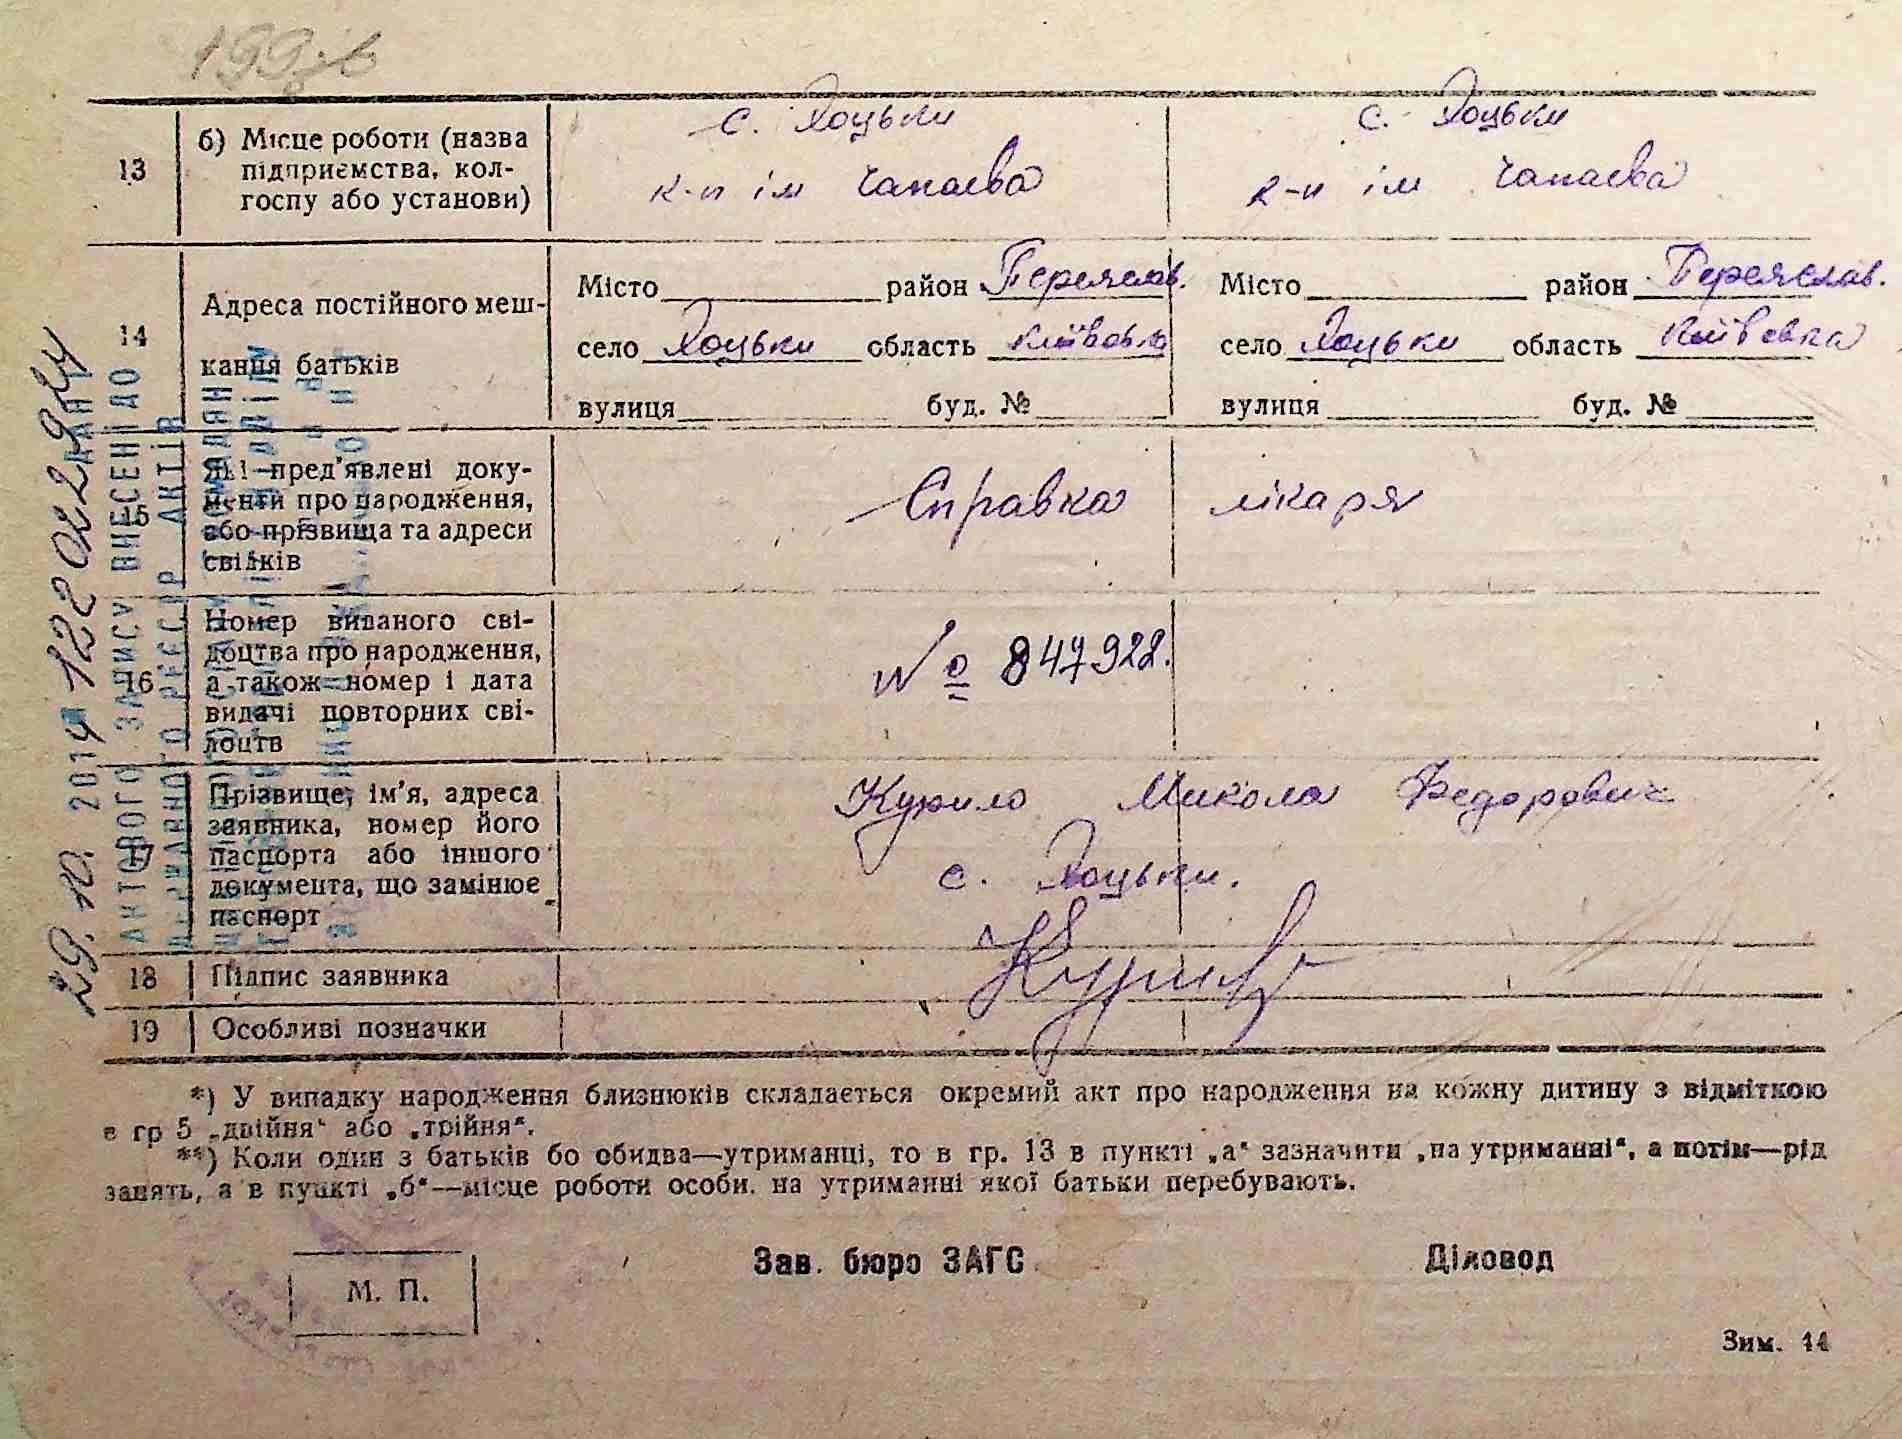 199зв
с. Хоцьки с. Хоцьки
13 б) Місце роботи (назва
підприємства, кол-
госпу або установи)
к-п ім Чапаєва к-п ім Чапаєва
14 Адреса постійного меш-
кання батьків
Місто район Переяслав. Місто район Переяслав.
село Хоцьки область Київська село Хоцьки область Київська
вулиця буд. № вулиця буд. №
15 Які пред'явлені доку-
менти про народження,
або прізвища та адреси
свідків
Справка лікаря
16 Номер виданого сві-
доцтва про народження,
а також номер і дата
видачі повторних сві-
доцтв
№ 847922.
17 Прізвище, ім'я, адреса
заявника, номер його
паспорта або іншого
документа, що замінює
паспорт
Курило Микола Федорович
с. Хоцьки.
18 Підпис заявника
19 Особливі позначки
*) У випадку народження близнюків складається окремий акт про народження на кожну дитину з відміткою
в гр 5 „двійня“ або „трійня“.
**) Коли один з батьків бо обидва—утриманці, то в гр. 13 в пункті „а“ зазначити „на утриманні“, а потім—рід
занять, а в пункті „б“—місце роботи особи, на утриманні якої батьки перебувають.
Зав. бюро ЗАГС Діловод
М. П.
Зим. 14
29.10. 2014
АКТОВОГО ЗАПИСУ ВНЕСЕНІ ДО
ДЕРЖАВНОГО РЕЄСТР АКТІВ